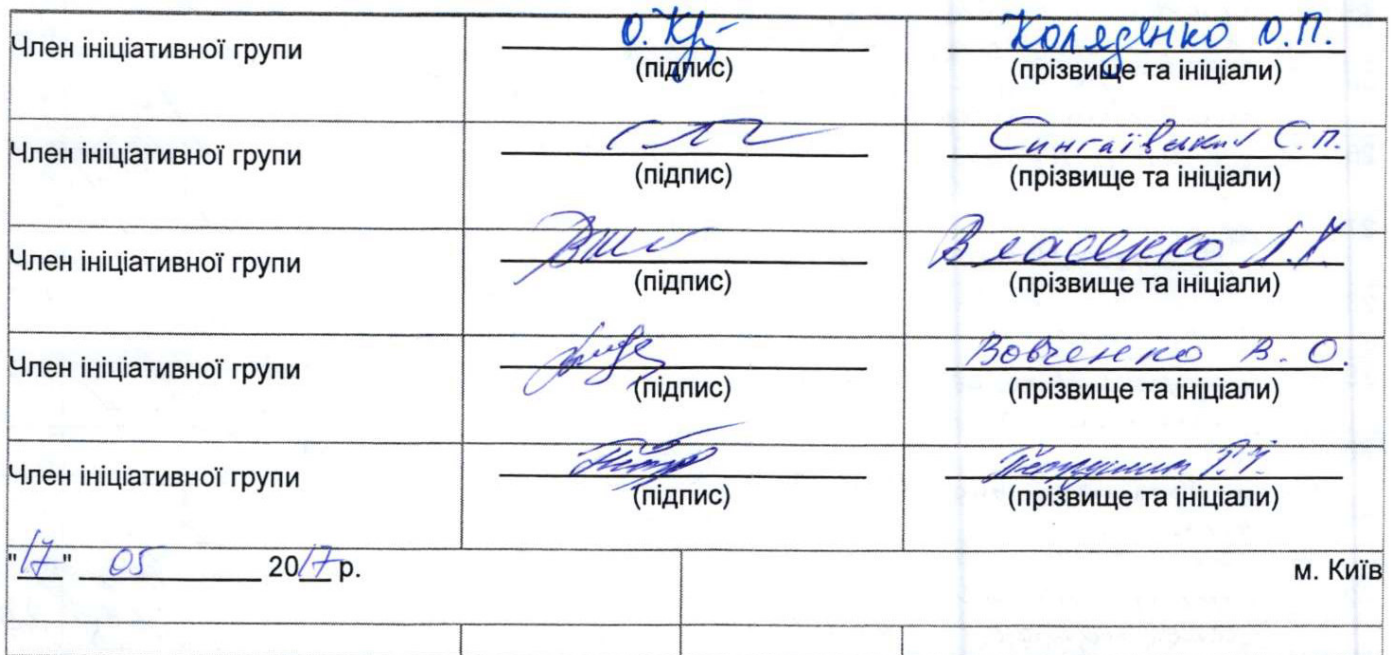 Член ініціативної групи О. Коляденко О.П.
(підпис) (прізвище та ініціали)
Член ініціативної групи Сингаївський С.П.
(підпис) (прізвище та ініціали)
Член ініціативної групи Власенко
(підпис) (прізвище та ініціали)
Член ініціативної групи Вовченко В.О.
(підпис) (прізвище та ініціали)
Член ініціативної групи
(підпис) (прізвище та ініціали)
"17" 05 2017 р. м. Київ